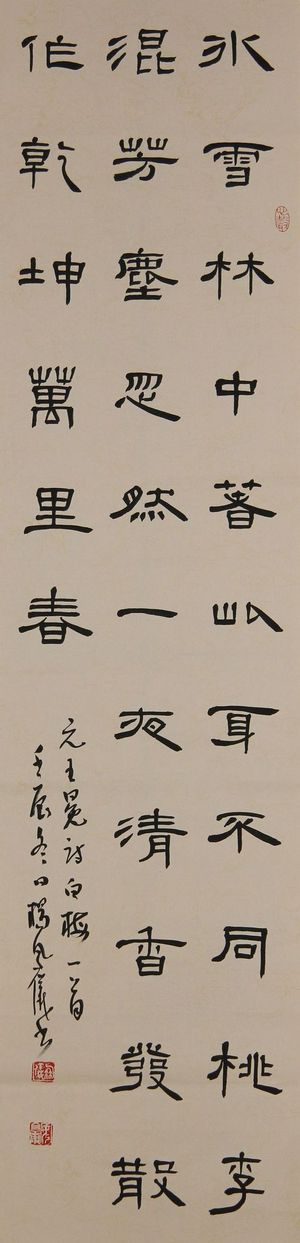 冰雪林中著此身不同桃李
混芳塵忽然一夜清香發散
作乾坤萬里春
元王冕詩白梅一首
壬辰冬日楊凤儀书